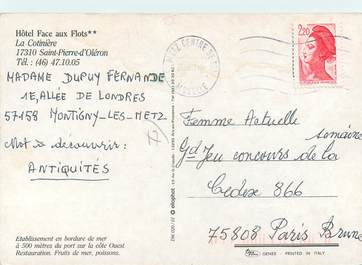 Hôtel Face aux Flots**
La Cotinière
17310 Saint-Pierre-d'Oléron
Tél. (46) 47.10.05
MADAME DUPUY FERNANDE
1E, ALLÉE DE LONDRES
57158 MONTIGNY-LES-METZ
Mot à découvrir:
ANTIQUITÉS
Etablissement en bordure de mer
à 500 mètres du port sur la côte Ouest
Restauration. Fruits de mer, poissons.
elophot
METZ CENTRE
MOSELLE
2,20
Femme Actuelle
semaine
Gd Jeu concours de la
Cedex 866
75808 Paris Brune
PRINTED IN ITALY